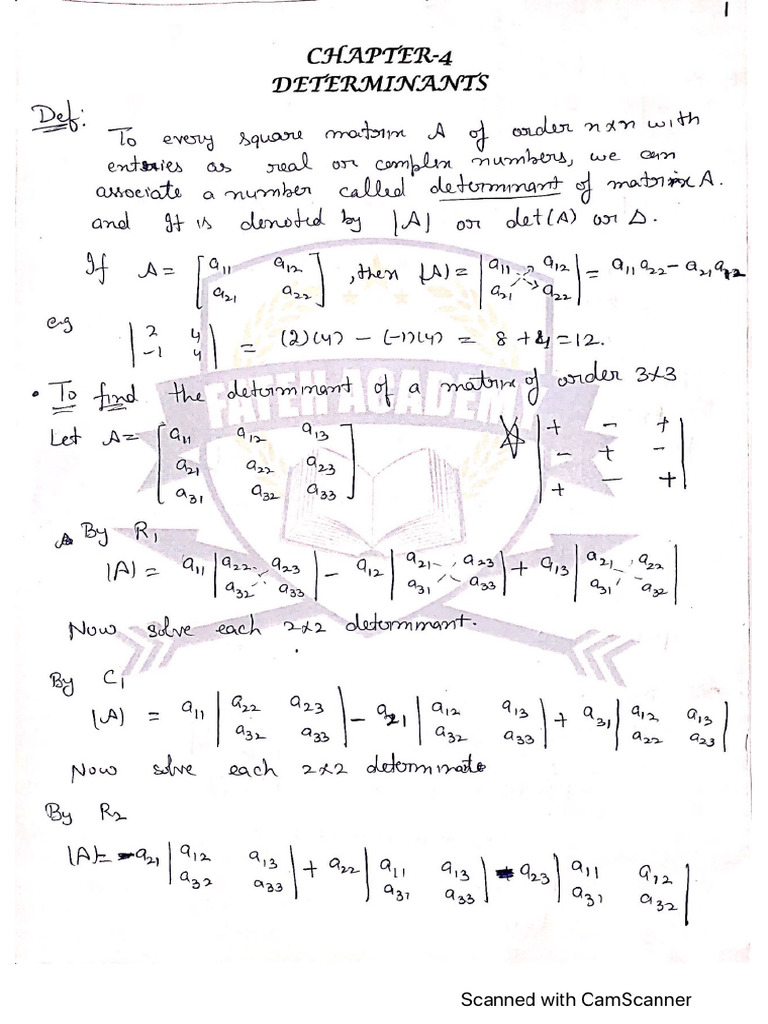 1
CHAPTER-4
DETERMINANTS
Def: To every square matrix A of order n×n with
enteries as real or complex numbers, we can
associate a number called determinant of matrix A.
and It is denoted by |A| or det(A) or Δ.
If A = [a11 a12 / a21 a22], then |A| = |a11 a12 / a21 a22| = a11 a22 - a21 a12
eg |2 4 / -1 4| = (2)(4) - (-1)(4) = 8 + 4 = 12.
• To find the determinant of a matrix of order 3×3
Let A = [a11 a12 a13 / a21 a22 a23 / a31 a32 a33] ☆ |+ - + / - + - / + - +|
By R1
|A| = a11 |a22 a23 / a32 a33| - a12 |a21 a23 / a31 a33| + a13 |a21 a22 / a31 a32|
Now solve each 2×2 determinant.
By C1
|A| = a11 |a22 a23 / a32 a33| - a21 |a12 a13 / a32 a33| + a31 |a12 a13 / a22 a23|
Now solve each 2×2 determinate
By R2
|A| = -a21 |a12 a13 / a32 a33| + a22 |a11 a13 / a31 a33| - a23 |a11 a12 / a31 a32|
FATEH ACADEMY
Scanned with CamScanner